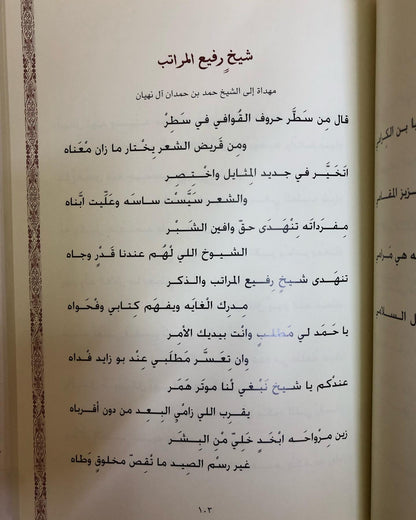 شيخٍ رفيع المراتب
مهداة إلى الشيخ حمد بن حمدان آل نهيان
قال مِن سَطَّر حروف القُوافي في سَطِرْ
ومن قَريض الشعر يِخْتار ما زان مْعَناه
اتْخَيَّر في جديد المْثايل واخْتِصِر
والشعر سَيَّسْت ساسَه وعَلّيت ابْناه
مِفرَداتَه تِنْهَدى حقّ وافين الشَبْر
الشيوخ اللي لْهُم عندنا قَدْرٍ وجاه
تنهدى شيخٍ رِفيع المراتب والذكر
مِدرك الغايَه ويفهَم كِتابي وفْحَواه
يا حَمَد لي مَطلَبٍ وانْت بيديك الأمِر
وان تِعَسَّر مَطلَبي عنْد بو زايد قَداه
عندْكم يا شيخ نَبْغي لْنا موتَر هَمَر
يقرب اللي زاميْ البِعِد من دون أقرباه
زين مِرْواحَه ابْحَدٍ خَلِيّ مْن البِشَر
غير رسْم الصِيد ما نْقِصّ مخلوقٍ وَطاه
١٠٣
يا بن الكرامي
السلامي